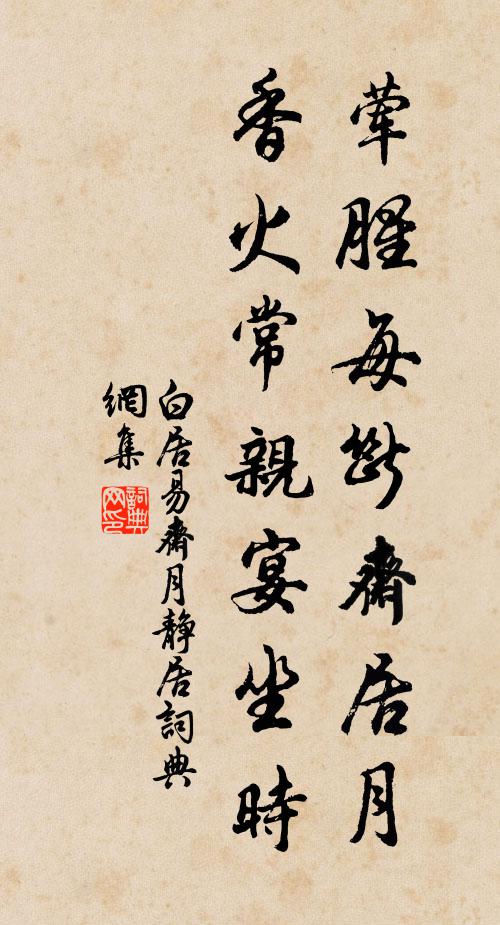 葷腥每斷齋居月
香火常親宴坐時
白居易齋月静居詞典
網集
詞典
网印